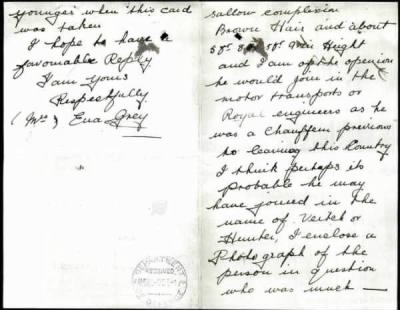 sallow complexion
Brown Hair and about
Hight
and I am of the openion
he would join in the
motor transports or
Royal engineers as he
was a Chauffeur previous
to leaving this Country
I think perhaps its
probable he may
have joined in the
name of Veitch or
Hunter, I enclose a
Photograph of the
person in question
who was much —
younger when this card
was taken
I hope to have a
favourable Reply
I am yours
Respectfully
(Mrs) Eva Grey
DEPARTMENT
RECEIVED